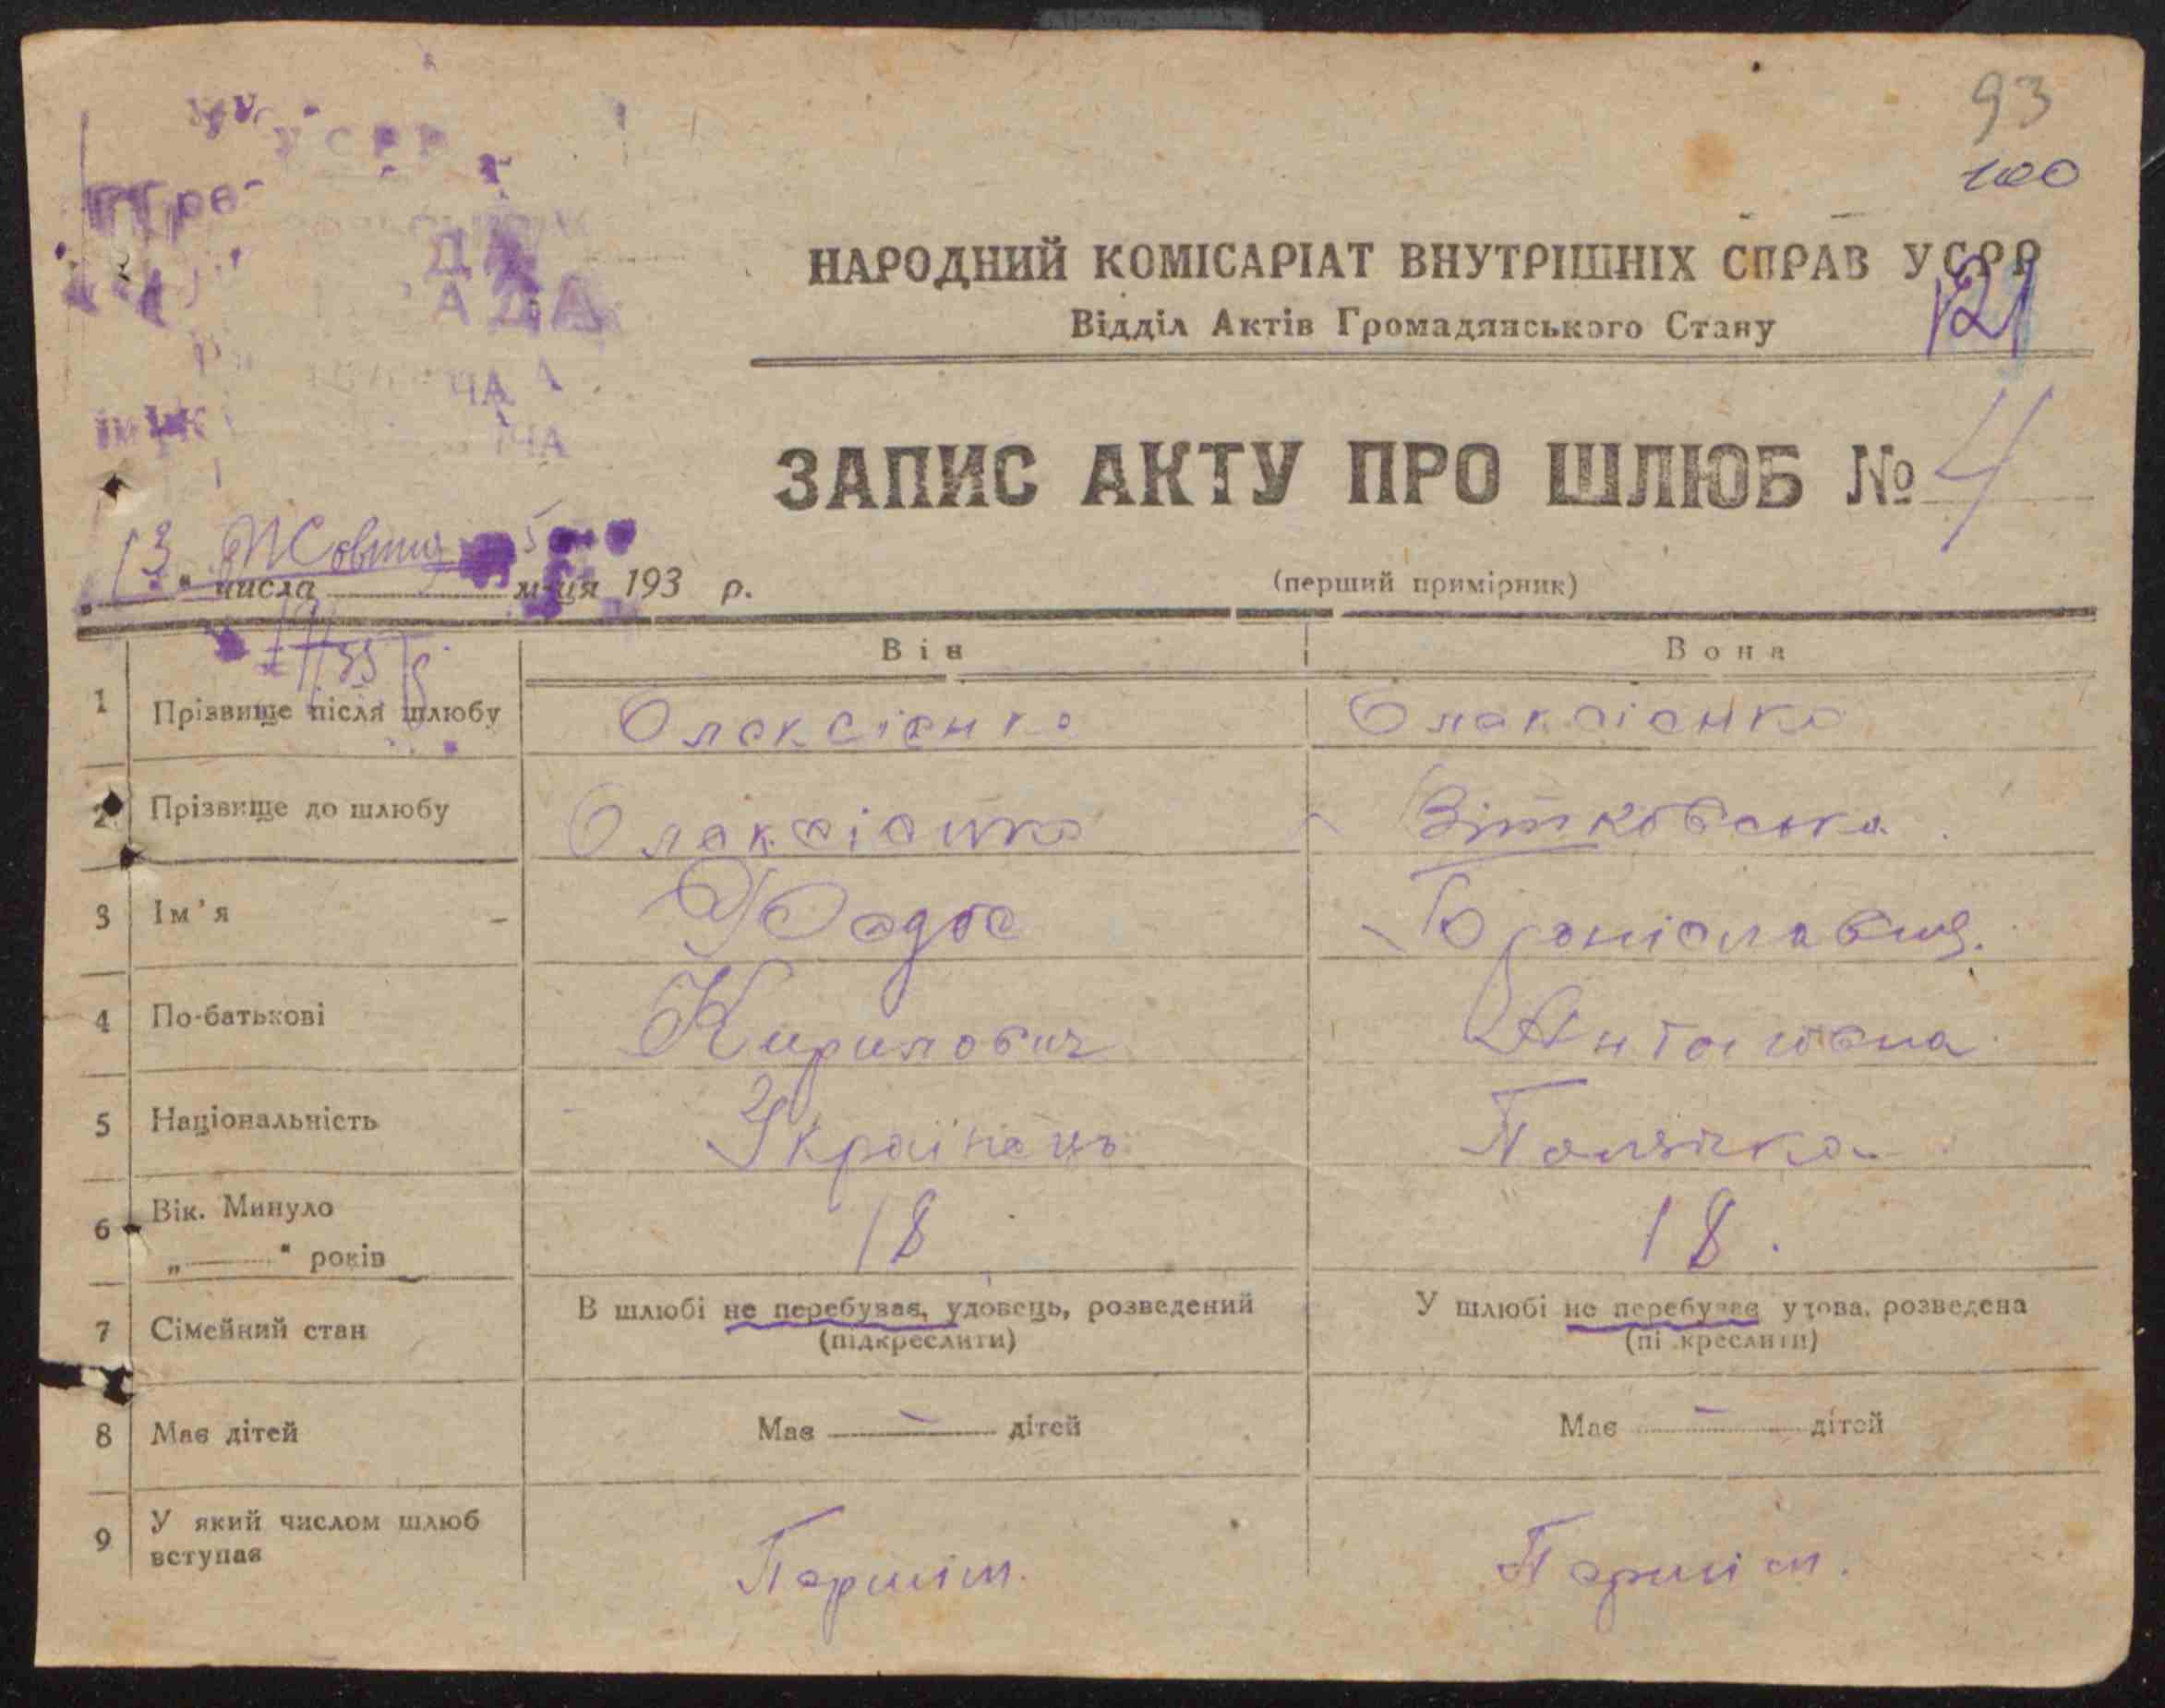 93
100
У С Р Р
НАРОДНИЙ КОМІСАРІАТ ВНУТРІШНІХ СПРАВ УСРР
121
Відділ Актів Громадянського Стану
ЗАПИС АКТУ ПРО ШЛЮБ № 4
(перший примірник)
13 " числа Жовтня м-ця 193 5 р.
Він Вона
1 Прізвище після шлюбу Олексієнко Олексієнко
2 Прізвище до шлюбу Олексієнко Вітковська
3 Ім'я Федос Броніславця.
4 По-батькові Кирилович Антонівна
5 Національність Українець Полячка
6 Вік. Минуло
„ " років 18 18.
7 Сімейний стан В шлюбі не перебував, удовець, розведений У шлюбі не перебував удова, розведена
(підкреслити) (підкреслити)
8 Має дітей Має — дітей Має — дітей
9 У який числом шлюб
вступав Перший. Перший.